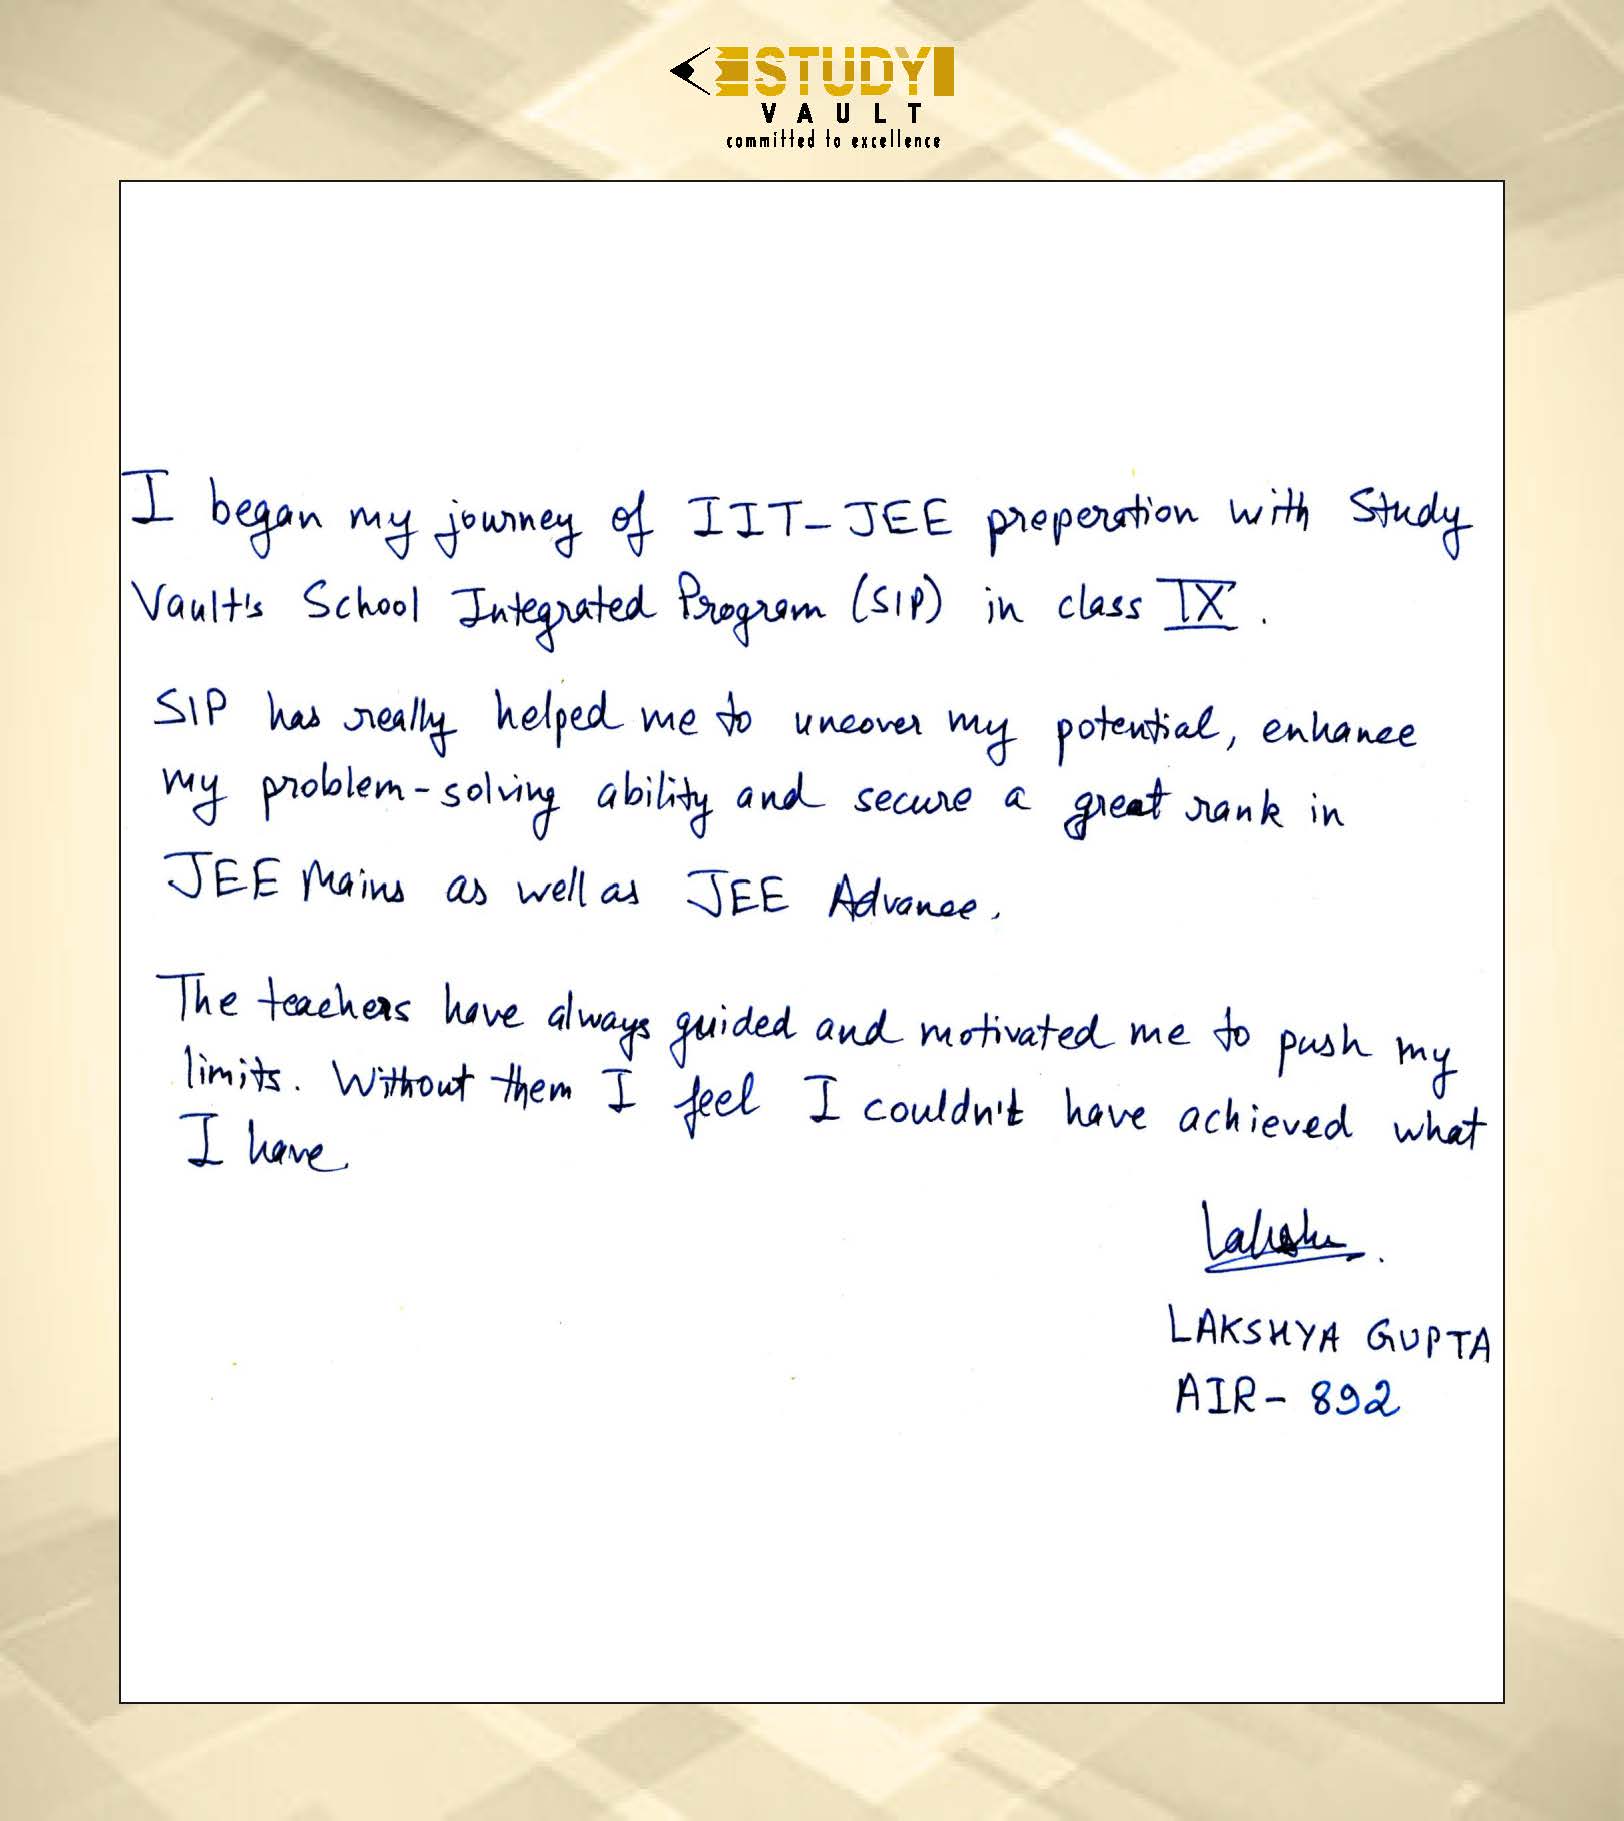 STUDY
VAULT
committed to excellence
I began my journey of IIT-JEE preperation with Study
Vault's School Integrated Program (SIP) in class IX.
SIP has really helped me to uncover my potential, enhance
my problem-solving ability and secure a great rank in
JEE Mains as well as JEE Advance.
The teachers have always guided and motivated me to push my
limits. Without them I feel I couldn't have achieved what
I have.
LAKSHYA GUPTA
AIR- 892